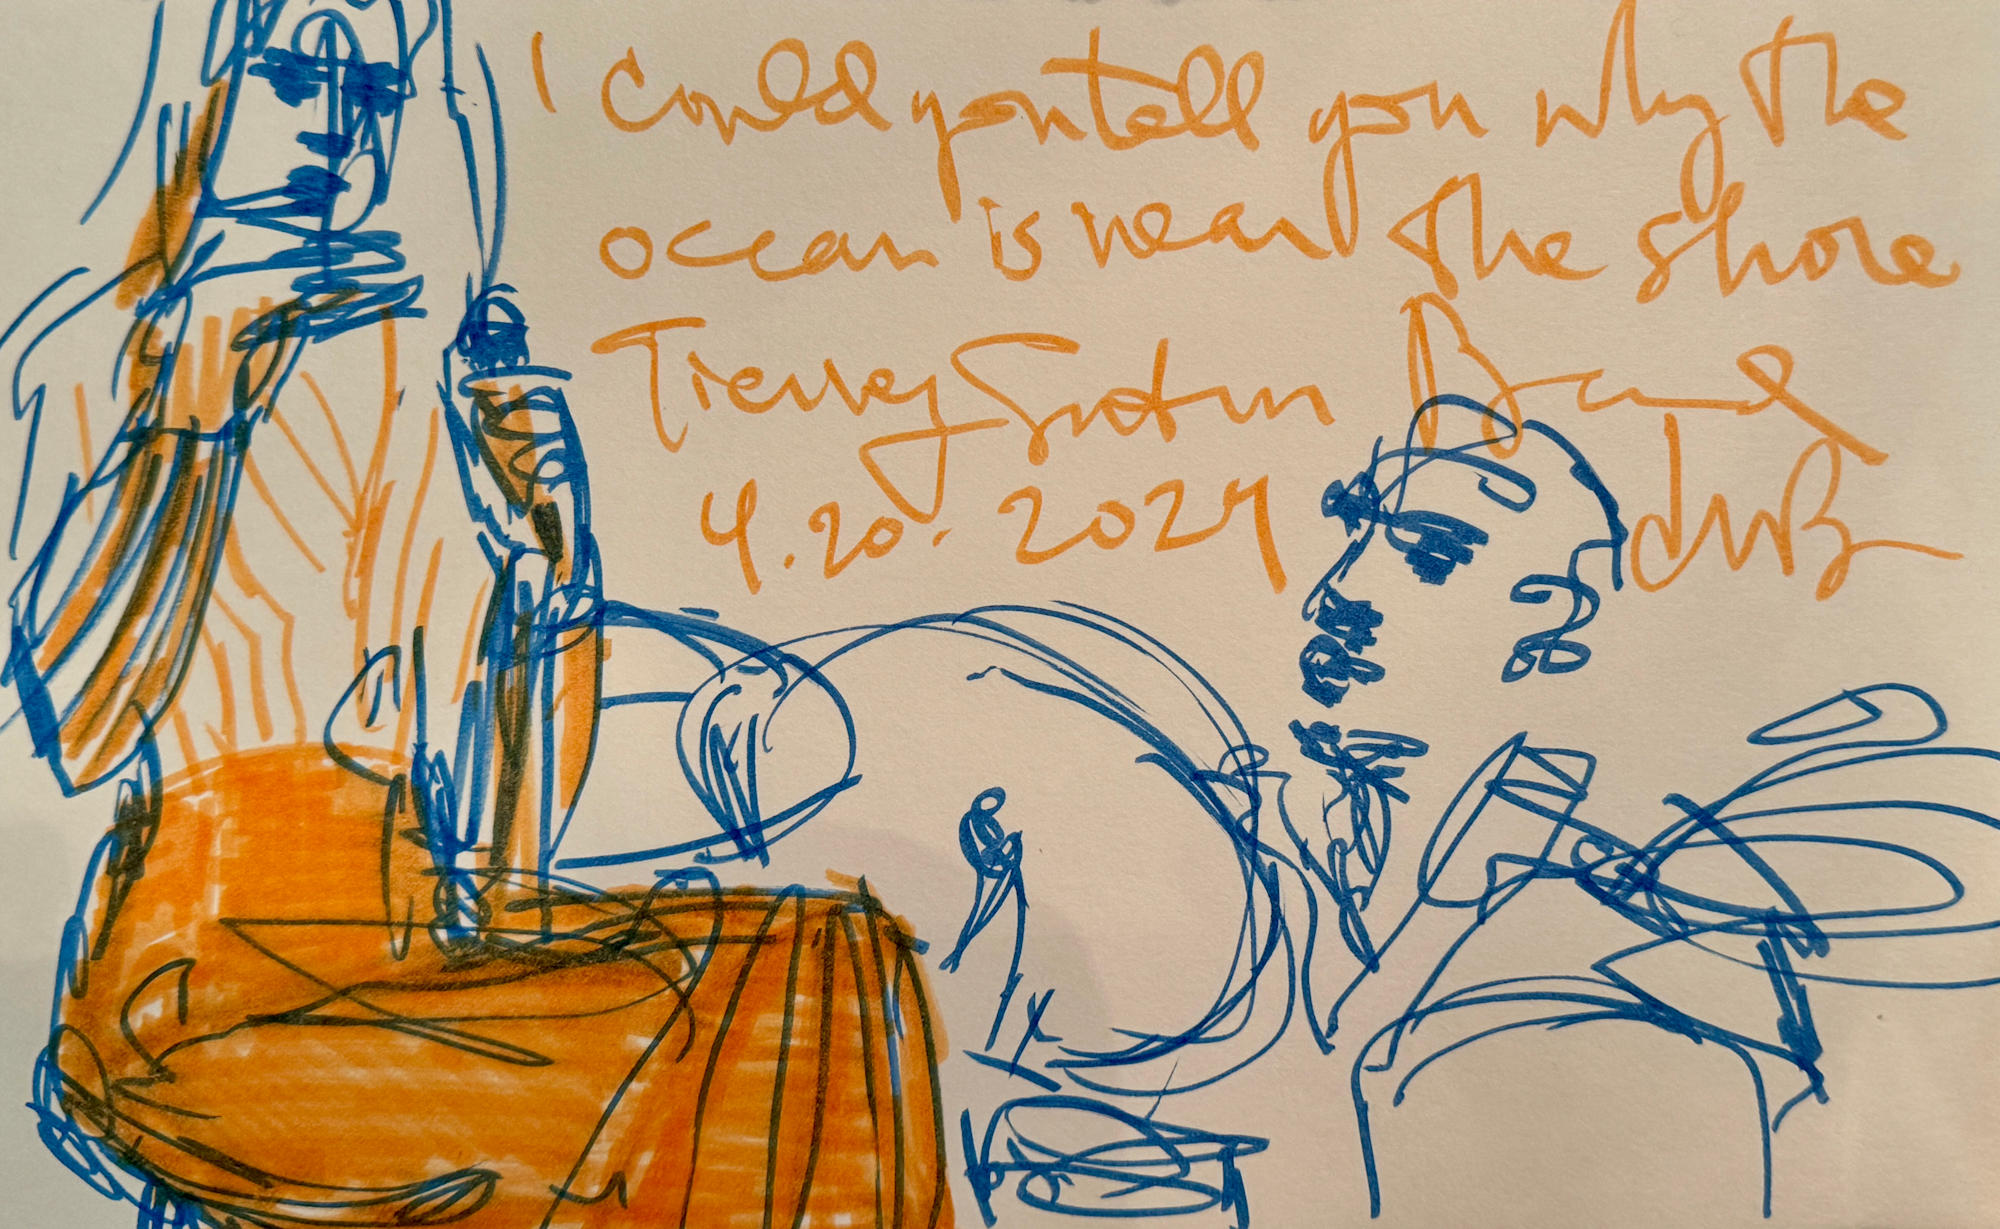 I Could you tell you why the
ocean is near the shore
Tierney Sutton Band
4.20.2024